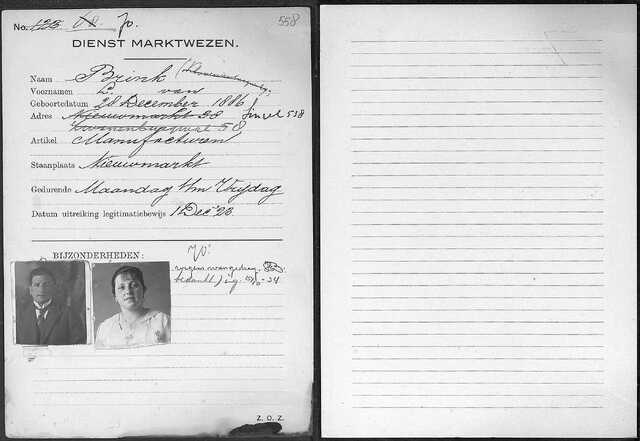 No. 123 70. 558
DIENST MARKTWEZEN.
Naam Brink
Voornamen L. van
Geboortedatum 28 December 1886
Adres Nieuwmarkt 28 Singel 538
58
Artikel Manufacturen
Staanplaats Nieuwmarkt
Gedurende Maandag t/m Vrijdag
Datum uitreiking legitimatiebewijs 1 Dec '23
BIJZONDERHEDEN:
70
wegens wangedrag
bedankt)
Z. O. Z.